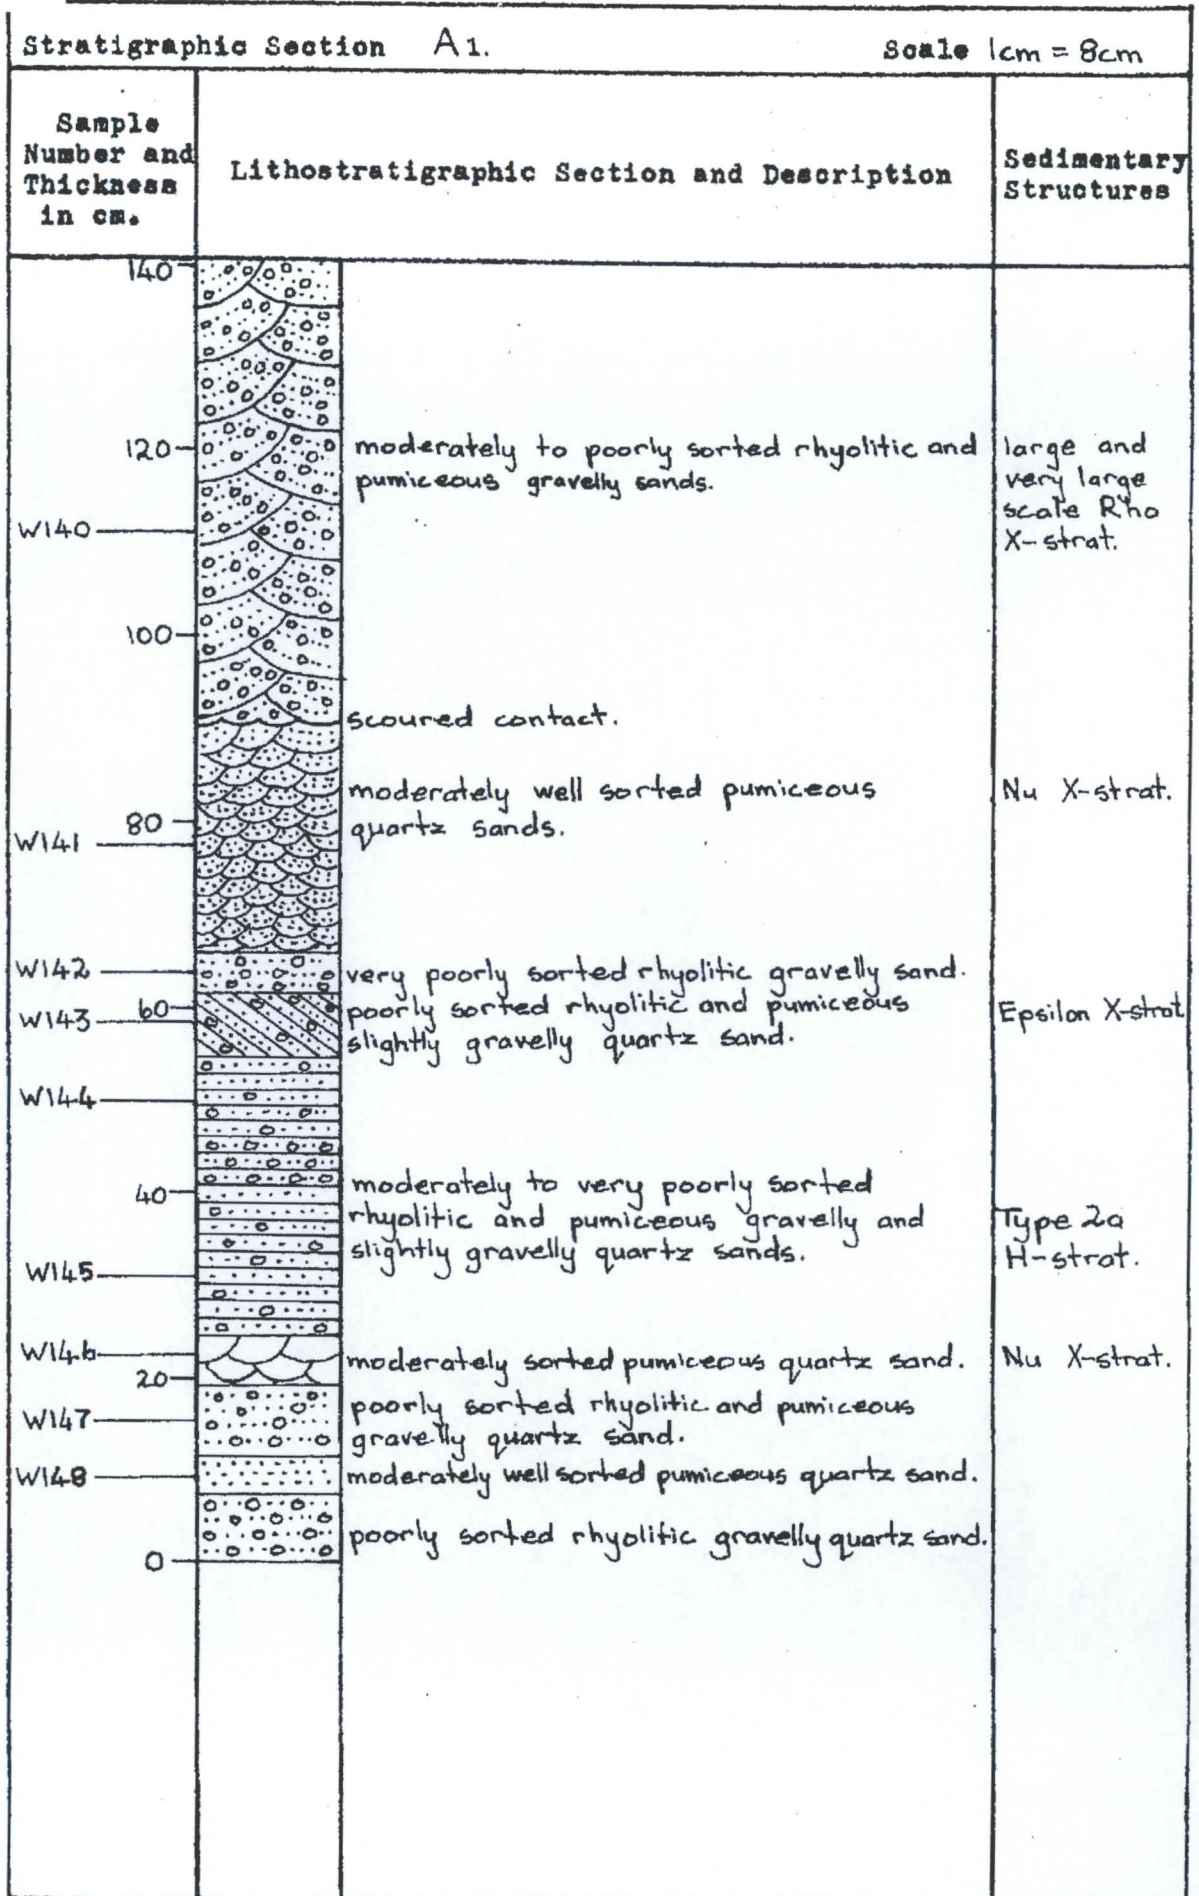 Stratigraphic Section A1.
Scale 1cm = 8cm
Sample
Number and
Thickness
in cm.
Lithostratigraphic Section and Description
Sedimentary
Structures
140
120
moderately to poorly sorted rhyolitic and
pumiceous gravelly sands.
large and
very large
scale Rho
X-strat.
W140
100
scoured contact.
moderately well sorted pumiceous
quartz sands.
Nu X-strat.
80
W141
W142
very poorly sorted rhyolitic gravelly sand.
60
W143
poorly sorted rhyolitic and pumiceous
slightly gravelly quartz sand.
Epsilon X-strat
W144
40
moderately to very poorly sorted
rhyolitic and pumiceous gravelly and
slightly gravelly quartz sands.
Type 2a
H-strat.
W145
W146
moderately sorted pumiceous quartz sand.
Nu X-strat.
20
W147
poorly sorted rhyolitic and pumiceous
gravelly quartz sand.
W148
moderately well sorted pumiceous quartz sand.
poorly sorted rhyolitic gravelly quartz sand.
0